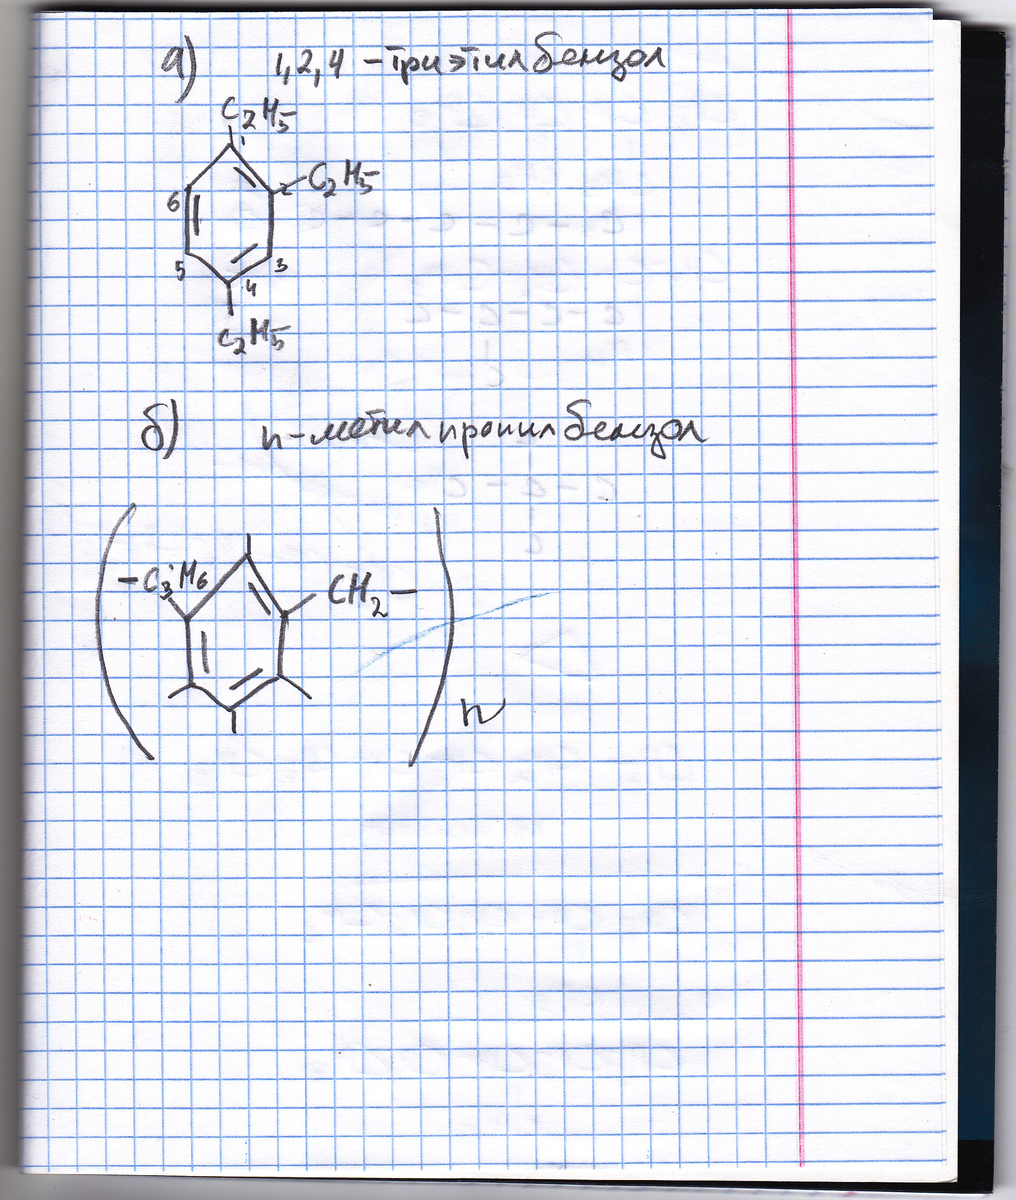 а) 1,2,4 - триэтилбензол
C2H5
1
2 C2H5
6
5 3
4
C2H5
б) п-метилпропилбензол
-C3H6 CH2-
n